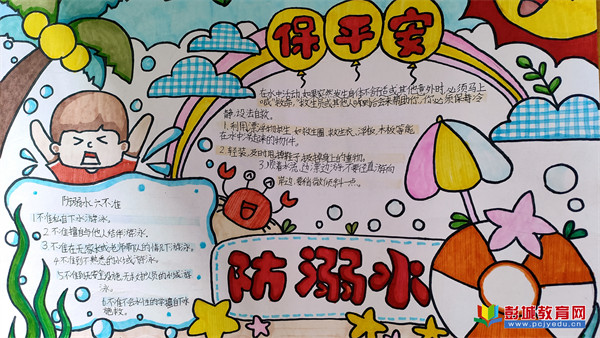 保平安
在水中活动,如果突然发生身体不舒适或其他意外时,必须马上
喊"救命",救生员或其他人随时会来帮助你,你必须保持冷
静,设法自救。
1.利用漂浮物求生,如救生圈、救生衣、浮板、木板等能
在水中浮起来的物件。
2.轻装,及时甩掉鞋子,扔掉身上的重物。
3.顺着水流
防溺水六不准
1.不准私自下水游泳。
2.不准擅自与他人结伴游泳。
3.不准在无家长或老师带队的情况下游泳。
4.不准到不熟悉的水域游泳。
5.不准到无安全设施、无救护人员的水域游
泳。
6.不准不会水性的学生擅自下水
施救。
防溺水
彭城教育网
www.pcjyedu.cn